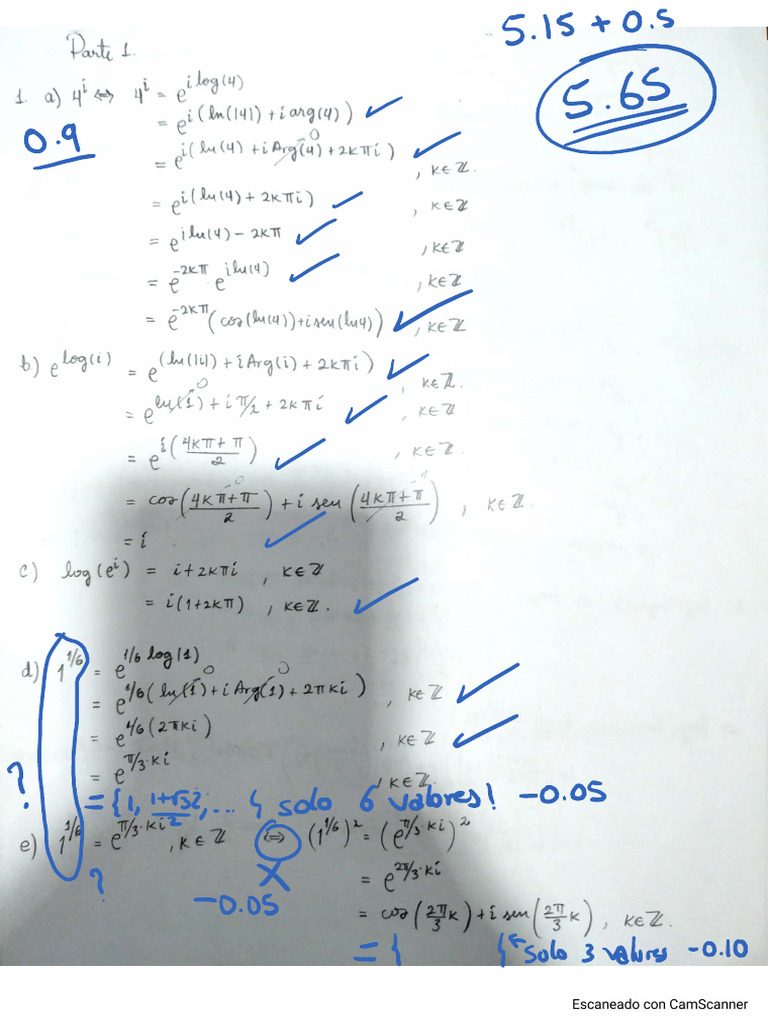 Parte 1.
5.15 + 0.5
5.65
1. a) 4^i ⇔ 4^i = e^{i log(4)}
0.9
= e^{i(ln(|4|) + i arg(4))} ✓
= e^{i(ln(4) + i Arg(4) + 2kπi)} ✓ , k∈ℤ.
= e^{i(ln(4) + 2kπi)} ✓ , k∈ℤ
= e^{i ln(4) - 2kπ} ✓ , k∈ℤ
= e^{-2kπ} e^{i ln(4)} ✓ , k∈ℤ
= e^{-2kπ}(cos(ln(4)) + i sen(ln4)) ✓ , k∈ℤ
b) e^{log(i)} = e^{(ln(|i|) + i Arg(i) + 2kπi)} ✓ , k∈ℤ.
= e^{ln(1) + iπ/2 + 2kπi} ✓ , k∈ℤ
= e^{i(4kπ+π / 2)} ✓ , k∈ℤ.
= cos(4kπ+π / 2) + i sen(4kπ+π / 2) , k∈ℤ.
= i ✓
c) log(e^i) = i + 2kπi , k∈ℤ
= i(1+2kπ) , k∈ℤ. ✓
d) 1^{1/6} = e^{1/6 log(1)}
= e^{1/6(ln(1) + i Arg(1) + 2πki)} , k∈ℤ ✓
= e^{1/6(2πki)} , k∈ℤ ✓
= e^{π/3·ki} , k∈ℤ.
? = {1, 1+√3i / 2, ... { solo 6 valores! -0.05
e) 1^{1/6} = e^{π/3·ki} , k∈ℤ ⇔ (1^{1/6})^2 = (e^{π/3·ki})^2
? X = e^{2π/3·ki}
-0.05
= cos(2π/3 k) + i sen(2π/3 k) , k∈ℤ.
= { { ← solo 3 valores -0.10
Escaneado con CamScanner